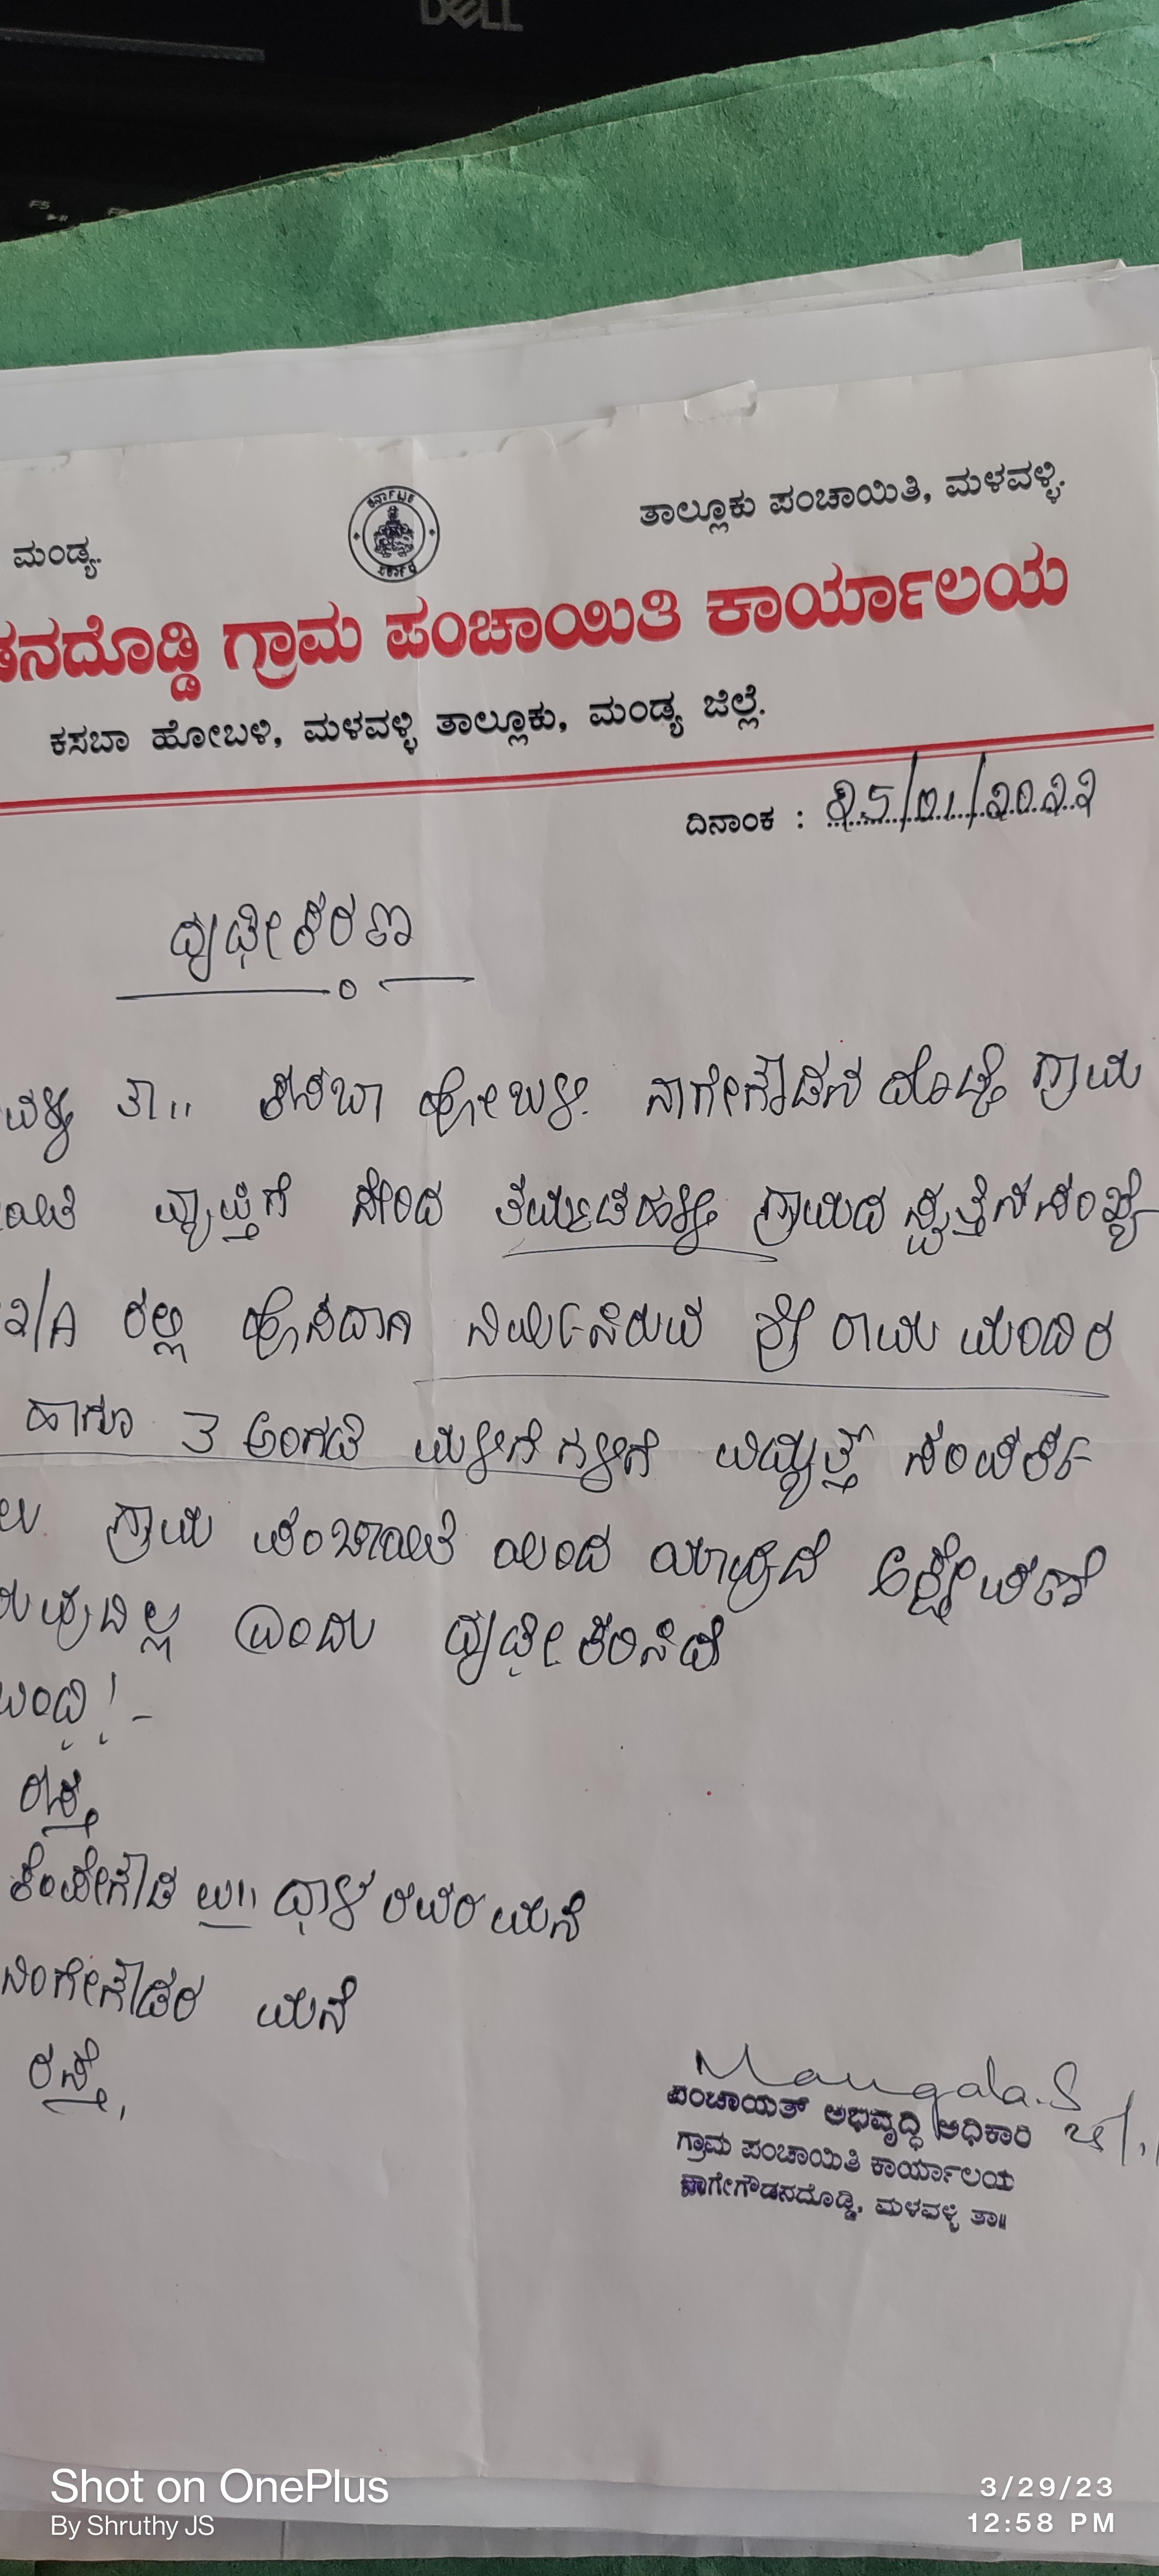 DELL
F5
ಕರ್ನಾಟಕ
ಸರ್ಕಾರ
ತಾಲ್ಲೂಕು ಪಂಚಾಯಿತಿ, ಮಳವಳ್ಳಿ.
ಮಂಡ್ಯ.
ಡನದೊಡ್ಡಿ ಗ್ರಾಮ ಪಂಚಾಯಿತಿ ಕಾರ್ಯಾಲಯ
ಕಸಬಾ ಹೋಬಳಿ, ಮಳವಳ್ಳಿ ತಾಲ್ಲೂಕು, ಮಂಡ್ಯ ಜಿಲ್ಲೆ.
ದಿನಾಂಕ : 25/01/2022
ದೃಢೀಕರಣ
ವಳ್ಳಿ ತಾ|| ಕಸಬಾ ಹೋಬಳಿ. ನಾಗೇಗೌಡನ ದೊಡ್ಡಿ ಗ್ರಾಮ
ಾಯಿತಿ ವ್ಯಾಪ್ತಿಗೆ ಸೇರಿದ ಗ್ರಾಮದ ಸ್ವತ್ತಿನ ಸಂಖ್ಯೆ
2/A ರಲ್ಲಿ ಹೊಸದಾಗಿ ನಿರ್ಮಿಸಿರುವ ಶ್ರೀ ರಾಮ ಮಂದಿರ
ಹಾಗೂ 3 ಅಂಗಡಿ ಮಳಿಗೆ ಗಳಿಗೆ ವಿದ್ಯುತ್ ಸಂಪರ್ಕ
ಲು ಗ್ರಾಮ ಪಂಚಾಯಿತಿ ಯಿಂದ ಯಾವುದೆ ಆಕ್ಷೇಪಣೆ
ರುವುದಿಲ್ಲ ಎಂದು ದೃಢೀಕರಿಸಿದೆ
ಬಂದಿ:-
ರಸ್ತೆ
ಕೆಂಪೇಗೌಡ ರವರ ಮನೆ
ನಿಂಗೇಗೌಡರ ಮನೆ
ರಸ್ತೆ,
Mangala.S
ಪಂಚಾಯತ್ ಅಭಿವೃದ್ಧಿ ಅಧಿಕಾರಿ
ಗ್ರಾಮ ಪಂಚಾಯಿತಿ ಕಾರ್ಯಾಲಯ
ನಾಗೇಗೌಡನದೊಡ್ಡಿ, ಮಳವಳ್ಳಿ ತಾ||
Shot on OnePlus
By Shruthy JS
3/29/23
12:58 PM